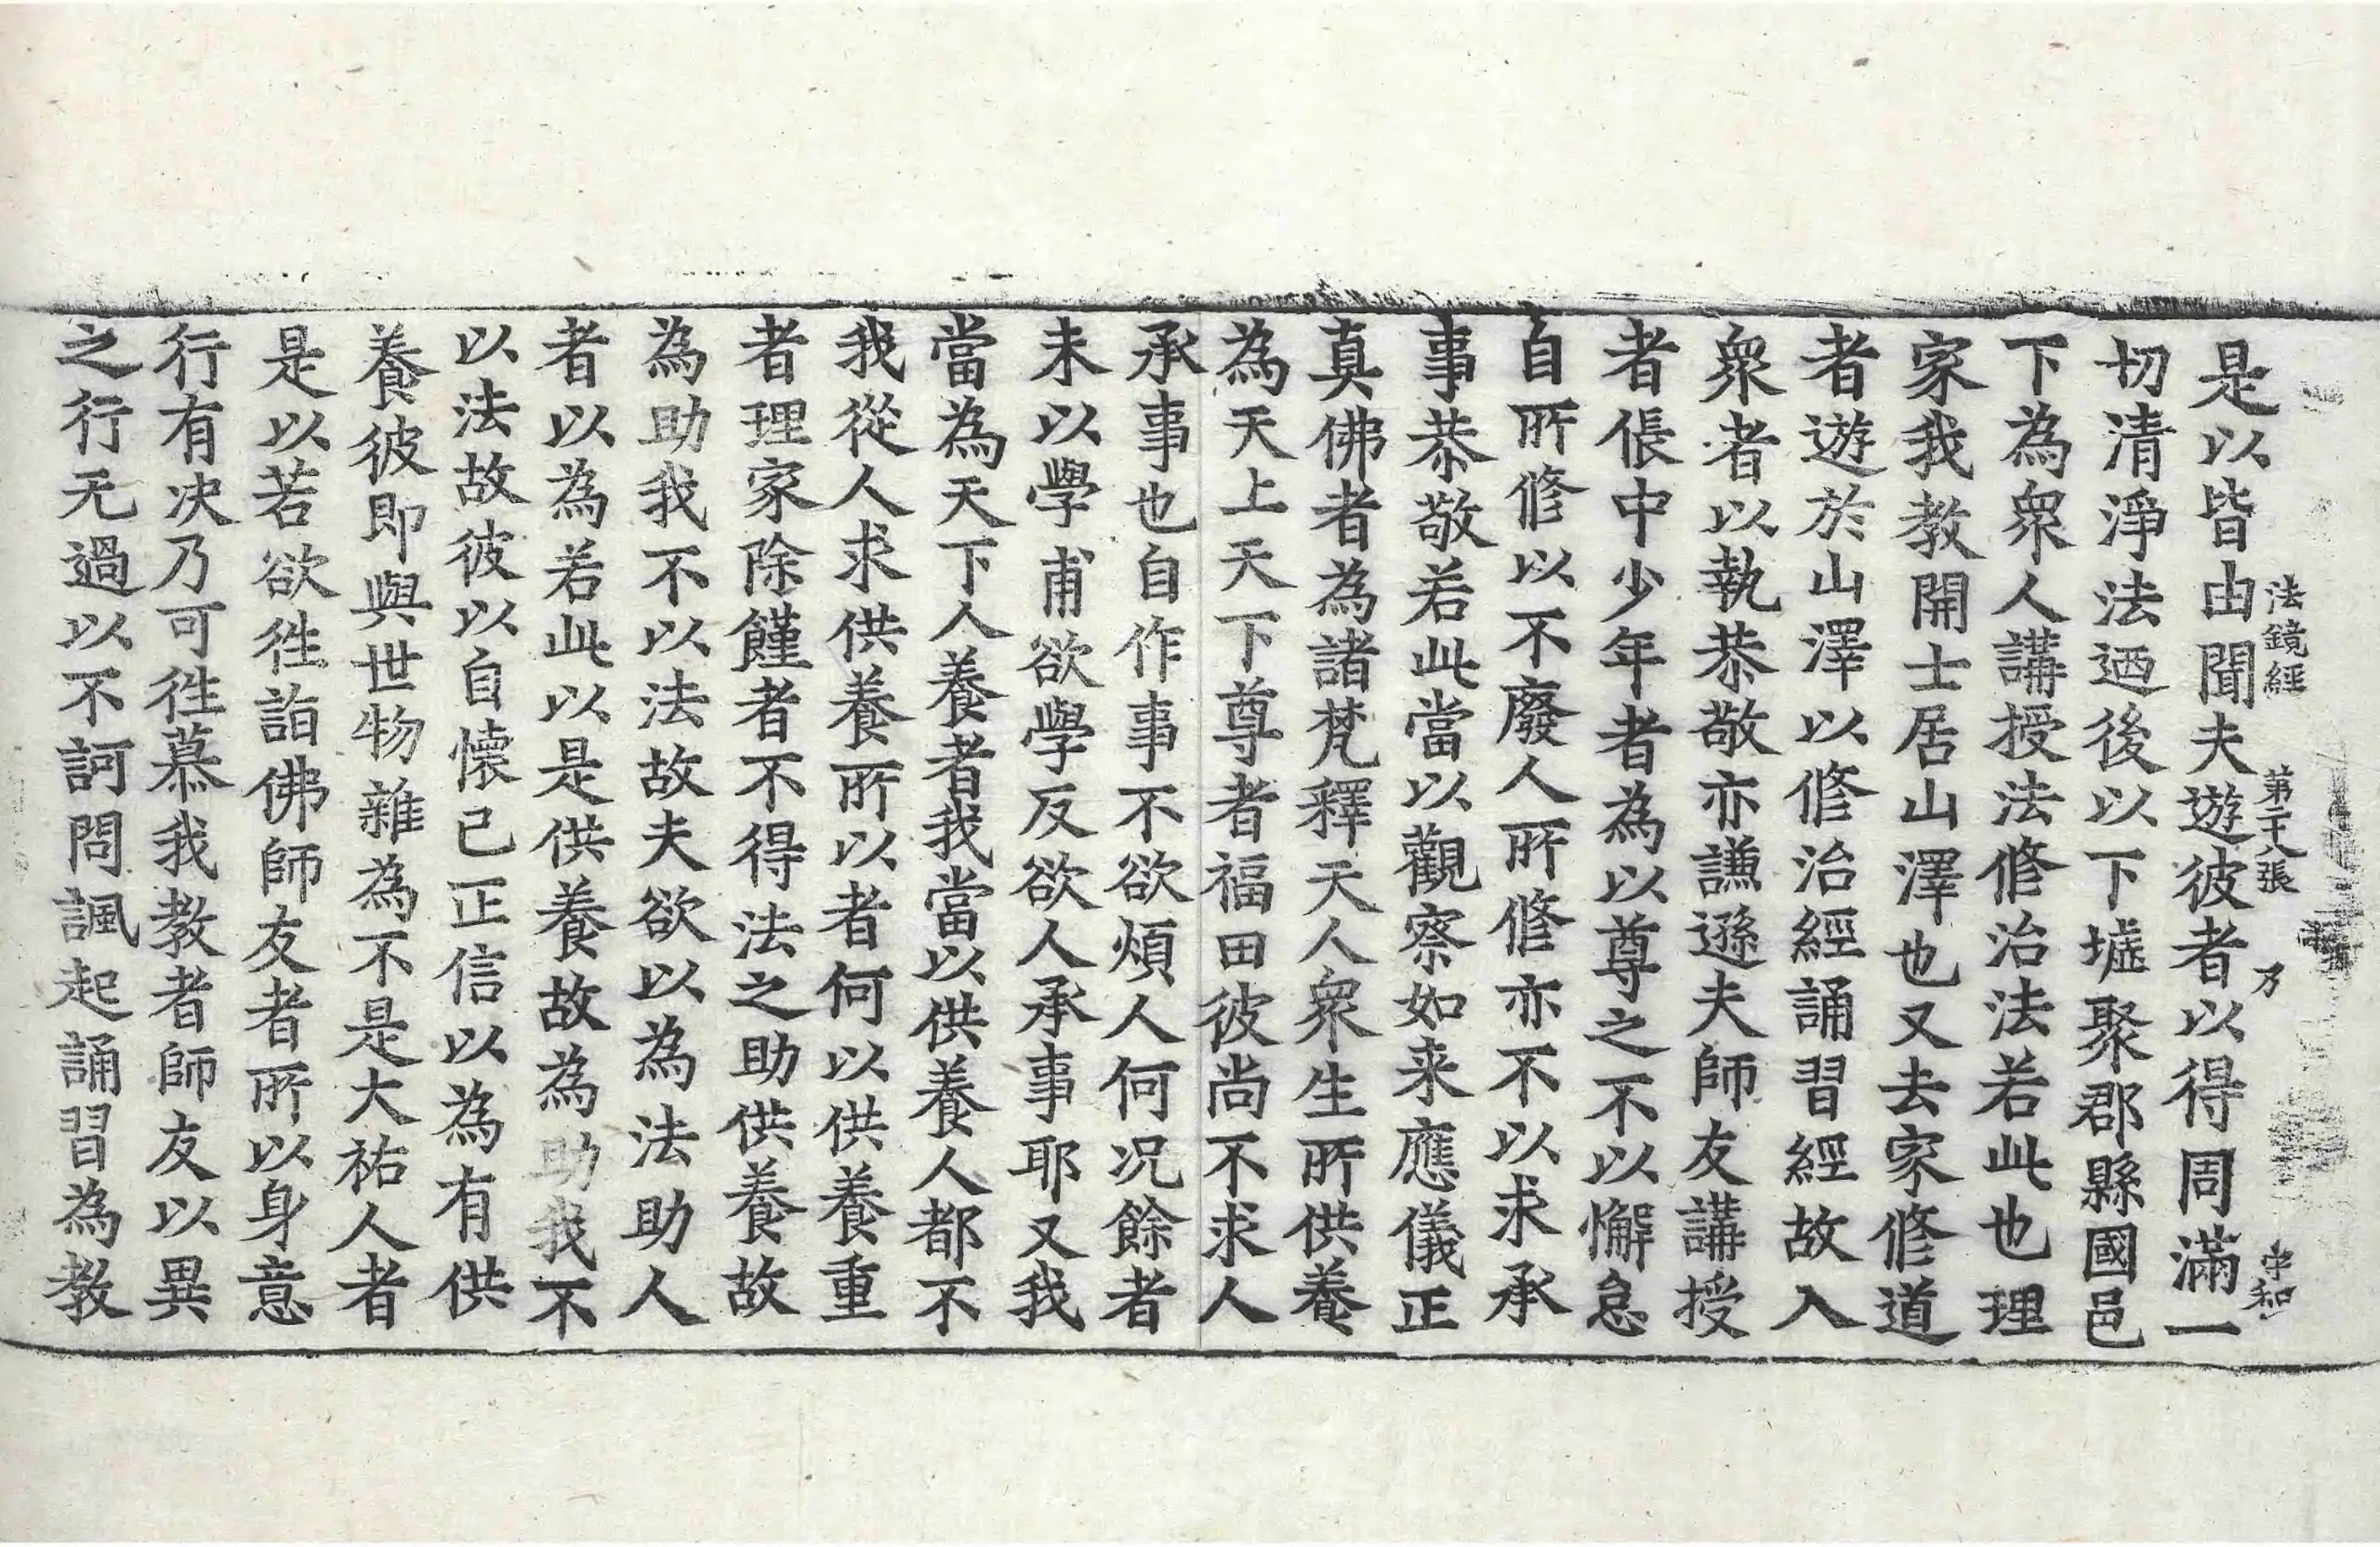 法鏡經 第十八張 乃 守和
是以皆由聞夫遊彼者以得周滿一
切清淨法迺後以下墟聚郡縣國邑
下為衆人講授法修治法若此也理
家我教開士居山澤也又去家修道
者遊於山澤以修治經誦習經故入
衆者以執恭敬亦謙遜夫師友講授
者倀中少年者為以尊之不以懈怠
自所修以不廢人所修亦不以求承
事恭敬若此當以觀察如来應儀正
真佛者為諸梵釋天人衆生所供養
為天上天下尊者福田彼尚不求人
承事也自作事不欲煩人何况餘者
未以學甫欲學反欲人承事耶又我
當為天下人養者我當以供養人都不
我從人求供養所以者何以供養重
者理家除饉者不得法之助供養故
為助我不以法故夫欲以為法助人
者以為若此以是供養故為助我不
以法故彼以自懷已正信以為有供
養彼即與世物雜為不是大祐人者
是以若欲徃詣佛師友者所以身意
行有决乃可徃慕我教者師友以異
之行无過以不訶問諷起誦習為教